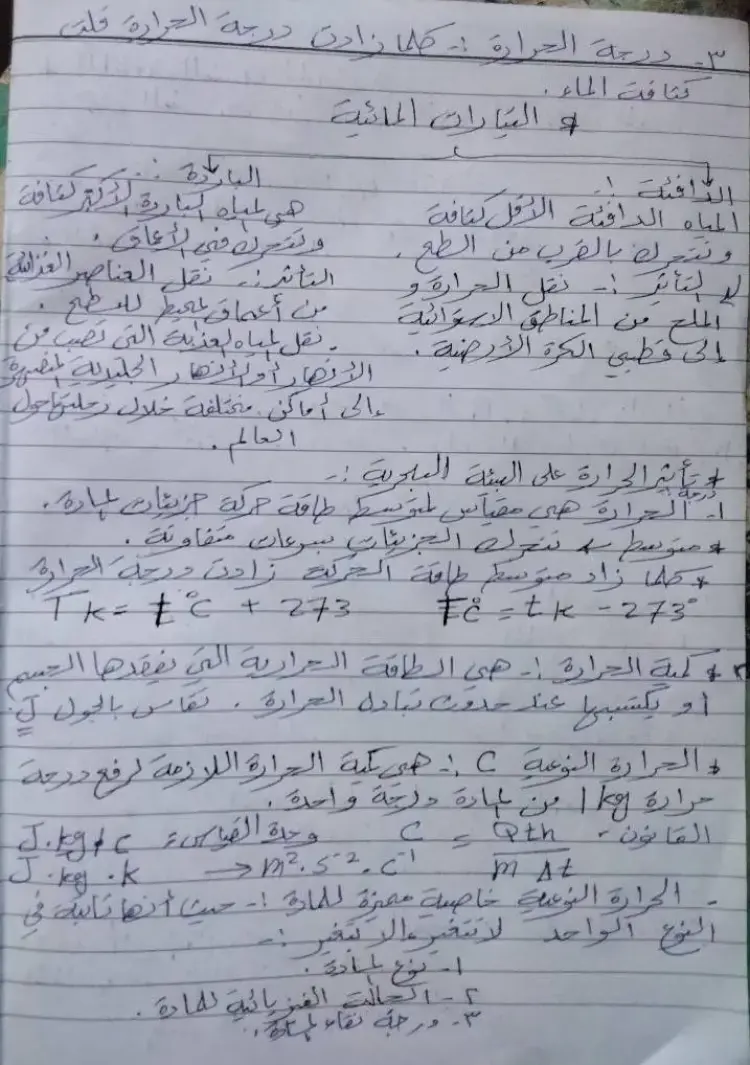 ٣- درجة الحرارة :- كلما زادت درجة الحرارة قلت
كثافة الماء.
* التيارات المائية
الدافئة :-
المياه الدافئة الأقل كثافة
وتتحرك بالقرب من السطح.
التأثر :- نقل الحرارة و
الملح من المناطق الاستوائية
إلى قطبي الكرة الأرضية.
الباردة :-
هي المياه الباردة الأكبر كثافة
وتتحرك في الأعماق.
التأثر :- نقل العناصر الغذائية
من أعماق المحيط للسطح.
. نقل المياه العذبة التي تصب من
الأنهار أو الأنهار الجليدية المنصهرة
إلى أماكن مختلفة خلال رحلتها حول
العالم.
* تأثير الحرارة على البيئة البحرية :-
١- درجة الحرارة هي مقياس لمتوسط طاقة حركة جزيئات المادة.
* متوسط ← تتحرك الجزيئات بسرعات متفاوتة.
* كلما زاد متوسط طاقة الحركة زادت درجة الحرارة
Tk = t°C + 273 T°C = tk - 273°
٢* كمية الحرارة :- هي الطاقة الحرارية التي يفقدها الجسم
أو يكتسبها عند حدوث تبادل الحرارة. تقاس بالجول J.
* الحرارة النوعية C :- هي كمية الحرارة اللازمة لرفع درجة
حرارة 1kg من المادة درجة واحدة.
القانون - C = Qth / m Δt وحدة القياس: J.kg.c
J.kg.k → m².s⁻².c⁻¹
- الحرارة النوعية خاصية مميزة للمادة :- حيث أنها ثابتة في
النوع الواحد لا تتغير إلا بتغير :-
١- نوع المادة.
٢- الحالة الفيزيائية للمادة.
٣- درجة نقاء المادة.